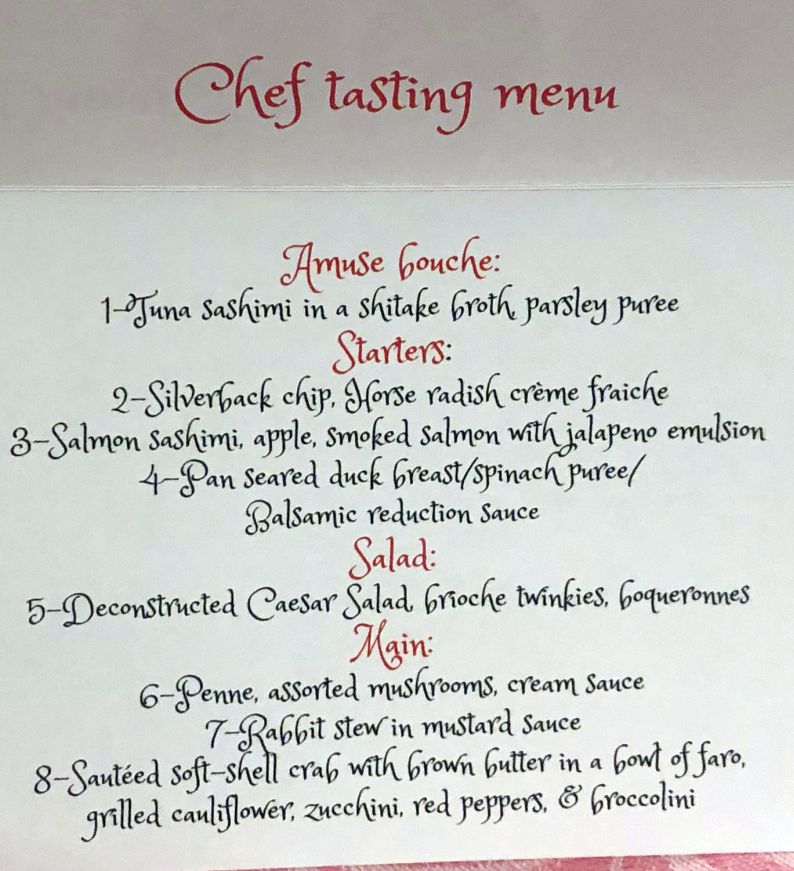 Chef tasting menu
Amuse bouche:
1-Tuna sashimi in a shitake broth, parsley puree
Starters:
2-Silverback chip, Horse radish crème fraiche
3-Salmon sashimi, apple, smoked salmon with jalapeno emulsion
4-Pan seared duck breast/spinach puree/
Balsamic reduction sauce
Salad:
5-Deconstructed Caesar Salad, brioche twinkies, boqueronnes
Main:
6-Penne, assorted mushrooms, cream sauce
7-Rabbit stew in mustard sauce
8-Sautéed soft-shell crab with brown butter in a bowl of faro,
grilled cauliflower, zucchini, red peppers, & broccolini